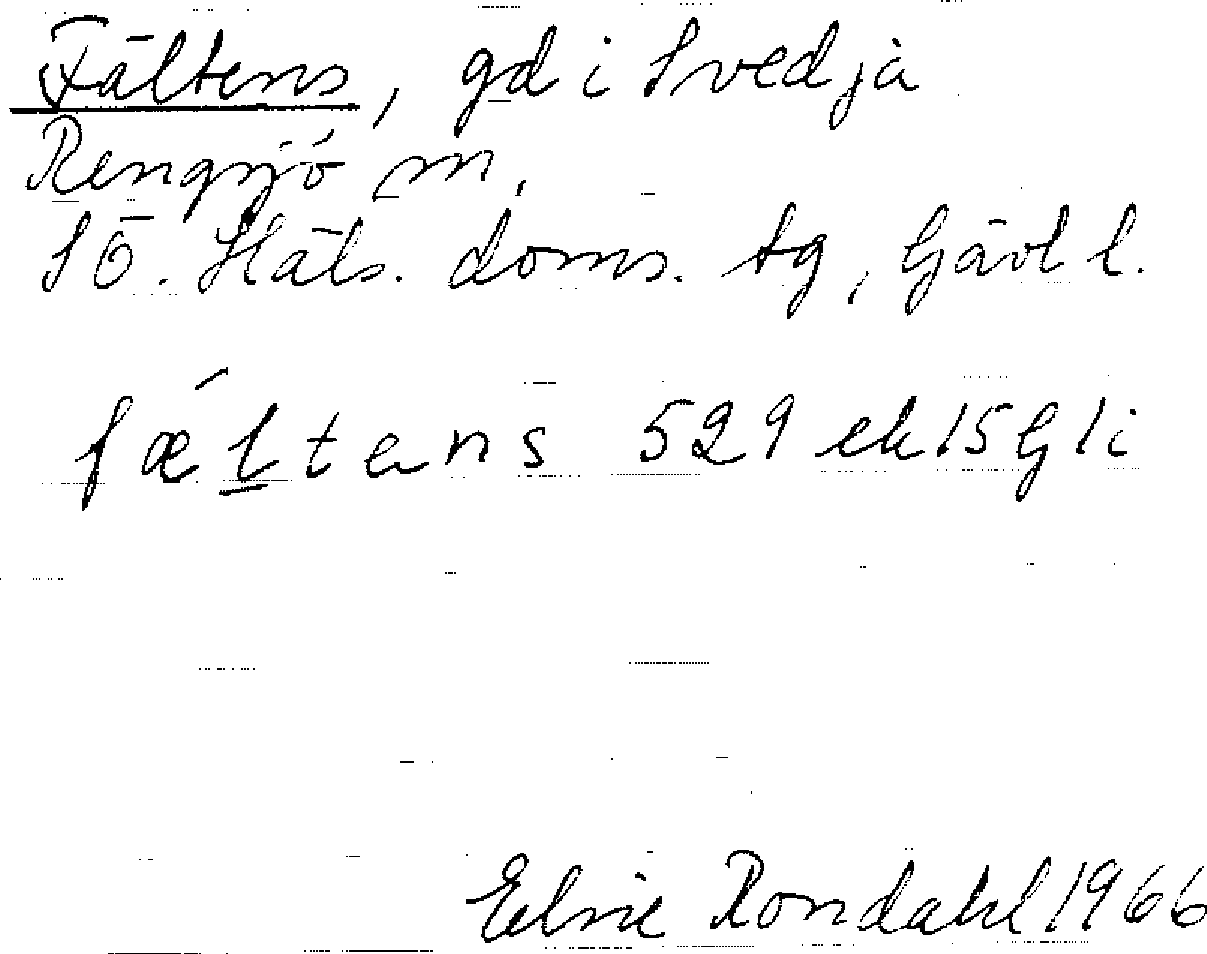 Fältens, gd i Svedja
Rengsjö sn,
SÖ. Häls. doms. tg, Gävl l.
fǽltens 529 ek 15G1i
Elsie Rondahl 1966